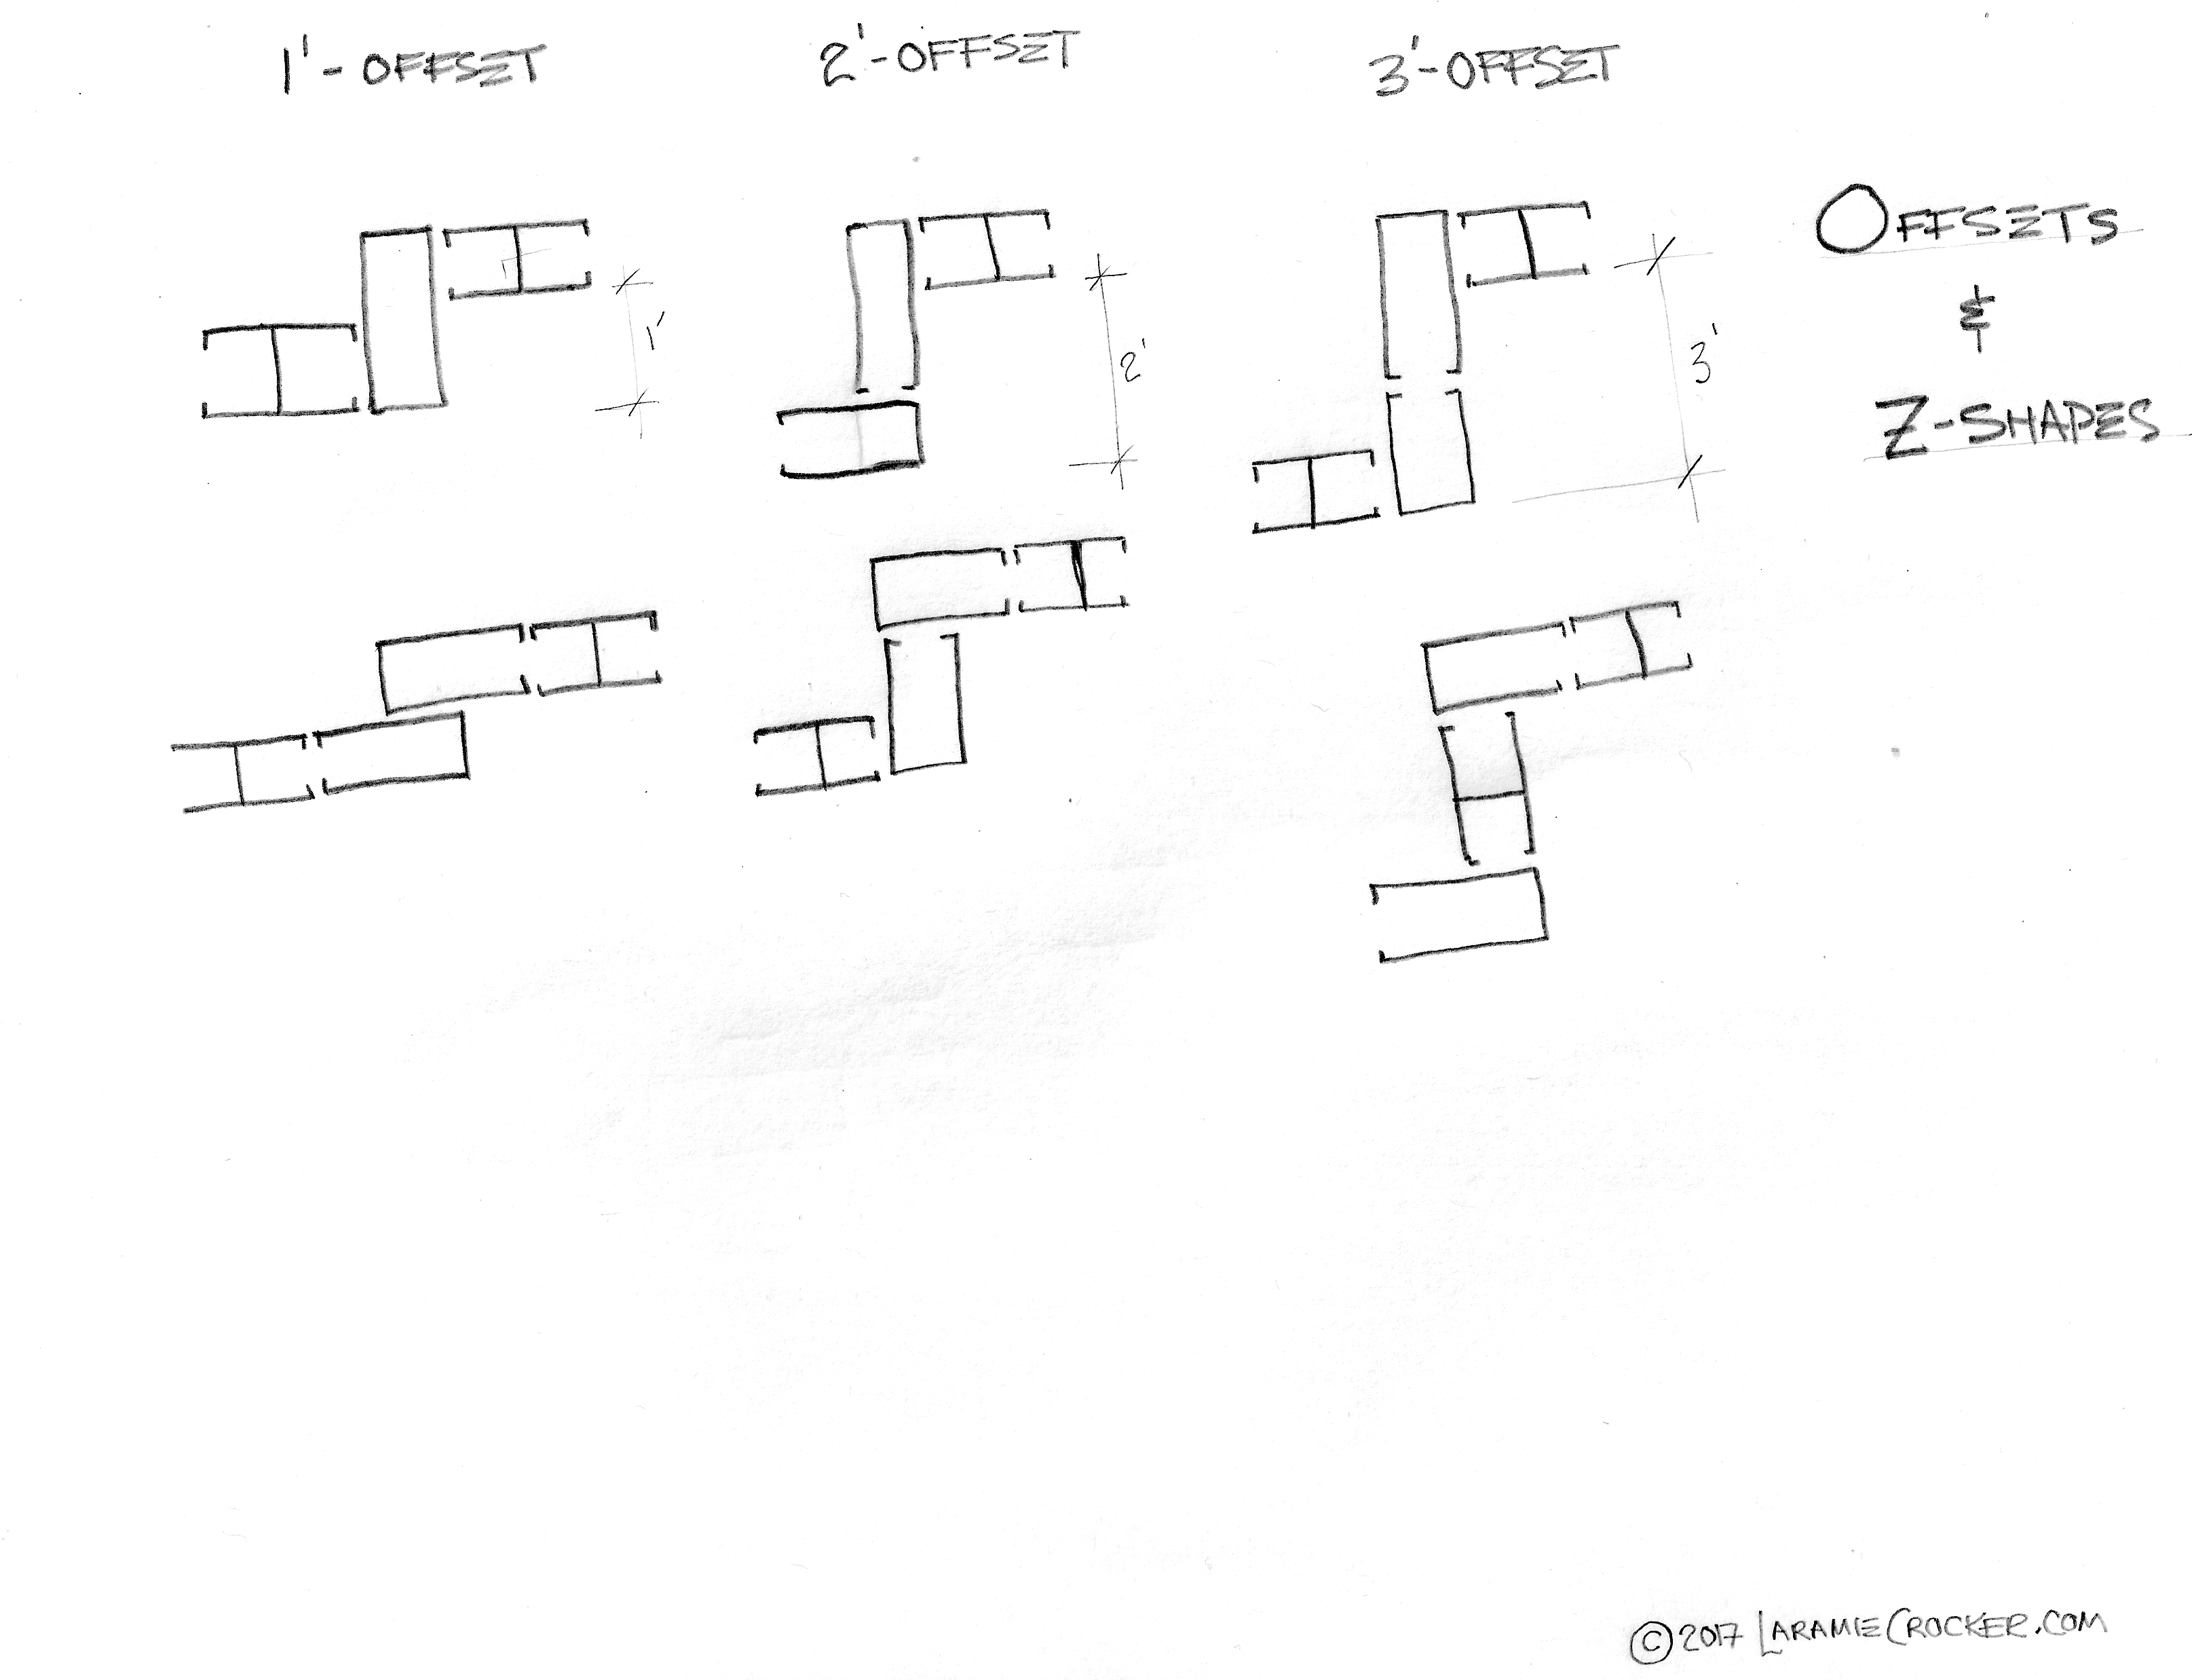 1'-OFFSET
2'-OFFSET
3'-OFFSET
OFFSETS
&
Z-SHAPES
1'
2'
3'
©2017 LARAMIECROCKER.COM